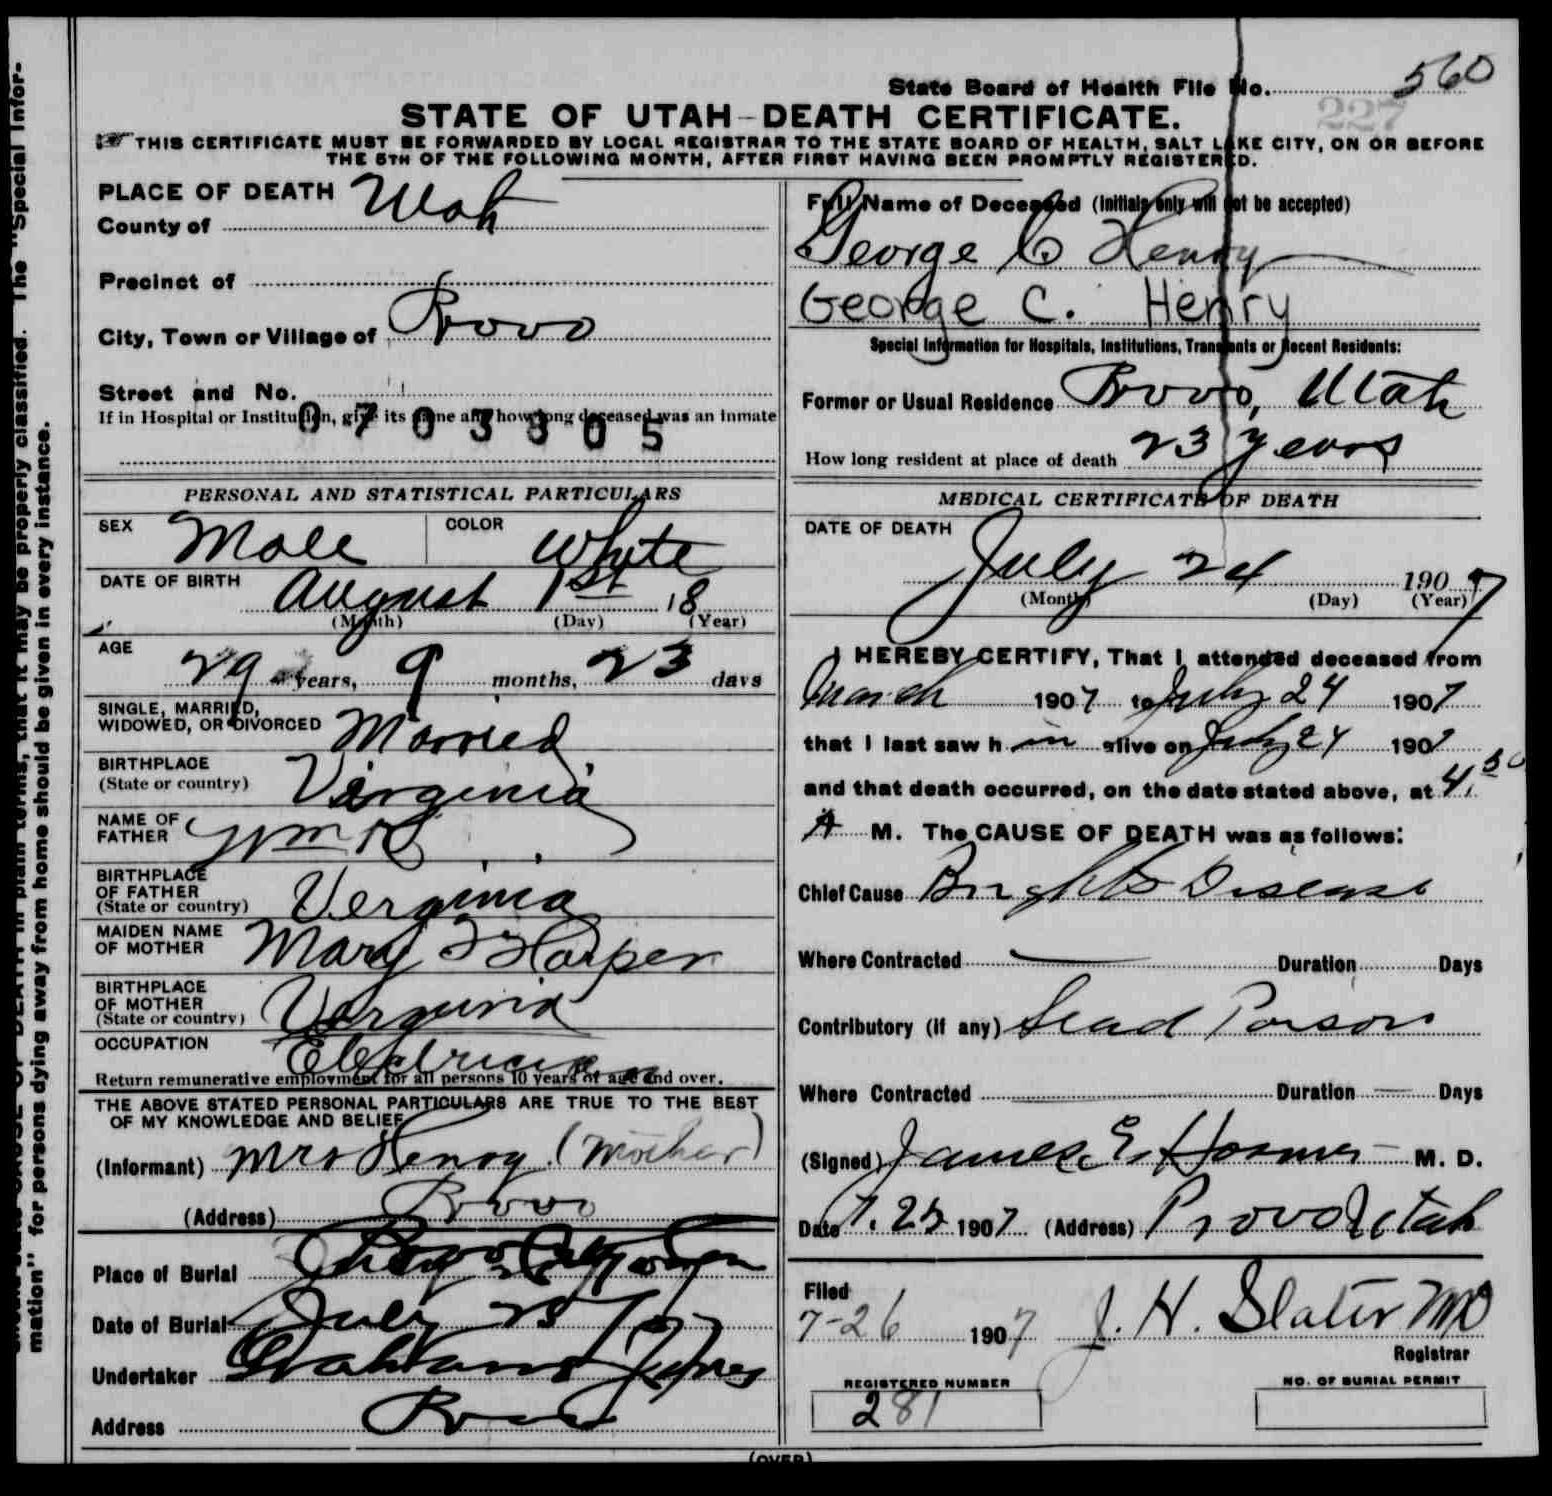 State Board of Health File No. 560
227
STATE OF UTAH-DEATH CERTIFICATE.
THIS CERTIFICATE MUST BE FORWARDED BY LOCAL REGISTRAR TO THE STATE BOARD OF HEALTH, SALT LAKE CITY, ON OR BEFORE
THE 5TH OF THE FOLLOWING MONTH, AFTER FIRST HAVING BEEN PROMPTLY REGISTERED.
PLACE OF DEATH
County of Utah
Precinct of
City, Town or Village of Provo
Street and No.
If in Hospital or Institution, give its name and how long deceased was an inmate
0703305
PERSONAL AND STATISTICAL PARTICULARS
SEX Male COLOR White
DATE OF BIRTH August 1st 18
(Month) (Day) (Year)
AGE 29 years, 9 months, 23 days
SINGLE, MARRIED,
WIDOWED, OR DIVORCED Married
BIRTHPLACE
(State or country) Virginia
NAME OF
FATHER Wm R
BIRTHPLACE
OF FATHER
(State or country) Verginia
MAIDEN NAME
OF MOTHER Mary Harper
BIRTHPLACE
OF MOTHER
(State or country) Verginia
OCCUPATION Electrician
Return remunerative employment for all persons 10 years of age and over.
THE ABOVE STATED PERSONAL PARTICULARS ARE TRUE TO THE BEST
OF MY KNOWLEDGE AND BELIEF
(Informant) Mrs Henry (Mother)
(Address) Provo
Place of Burial Provo City
Date of Burial July 25 1907
Undertaker Graham Jones
Address Provo
Full Name of Deceased (Initials only will not be accepted)
George C Henry
George C. Henry
Special Information for Hospitals, Institutions, Transients or Recent Residents:
Former or Usual Residence Provo, Utah
How long resident at place of death 23 years
MEDICAL CERTIFICATE OF DEATH
DATE OF DEATH
July 24 1907
(Month) (Day) (Year)
I HEREBY CERTIFY, That I attended deceased from
March 1907 to July 24 1907
that I last saw h im alive on July 24 1907
and that death occurred, on the date stated above, at 4.30
A M. The CAUSE OF DEATH was as follows:
Chief Cause Brights Disease
Where Contracted Duration Days
Contributory (if any) Lead Poison
Where Contracted Duration Days
(Signed) James E. M. D.
Date 7. 25 1907 (Address) Provo Utah
Filed
7-26 1907 J. H. Slater MD
Registrar
REGISTERED NUMBER
281
NO. OF BURIAL PERMIT
(OVER)
CAUSE OF DEATH in plain terms, that it may be properly classified. The "Special Infor-
mation" for persons dying away from home should be given in every instance.